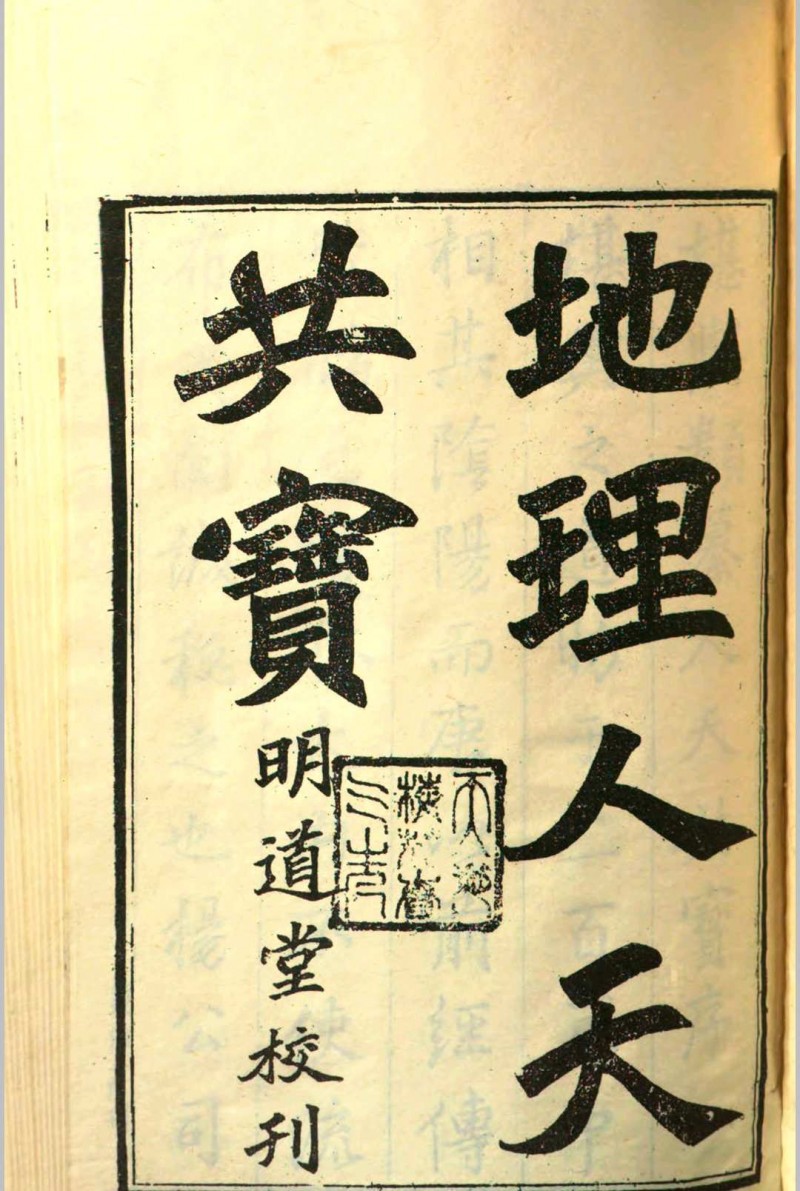 地理人天
共寶
明道堂校刊